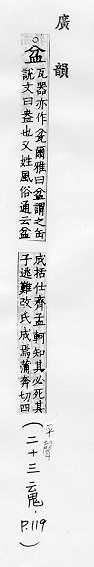 廣韻
盆
瓦器亦作瓫爾雅曰盎謂之缶
說文曰盎也又姓風俗通云盆
成括仕齊孟軻知其必死其
子逃難改氏成焉蒲奔切四
(平聲
二十三云鬼·P.119)